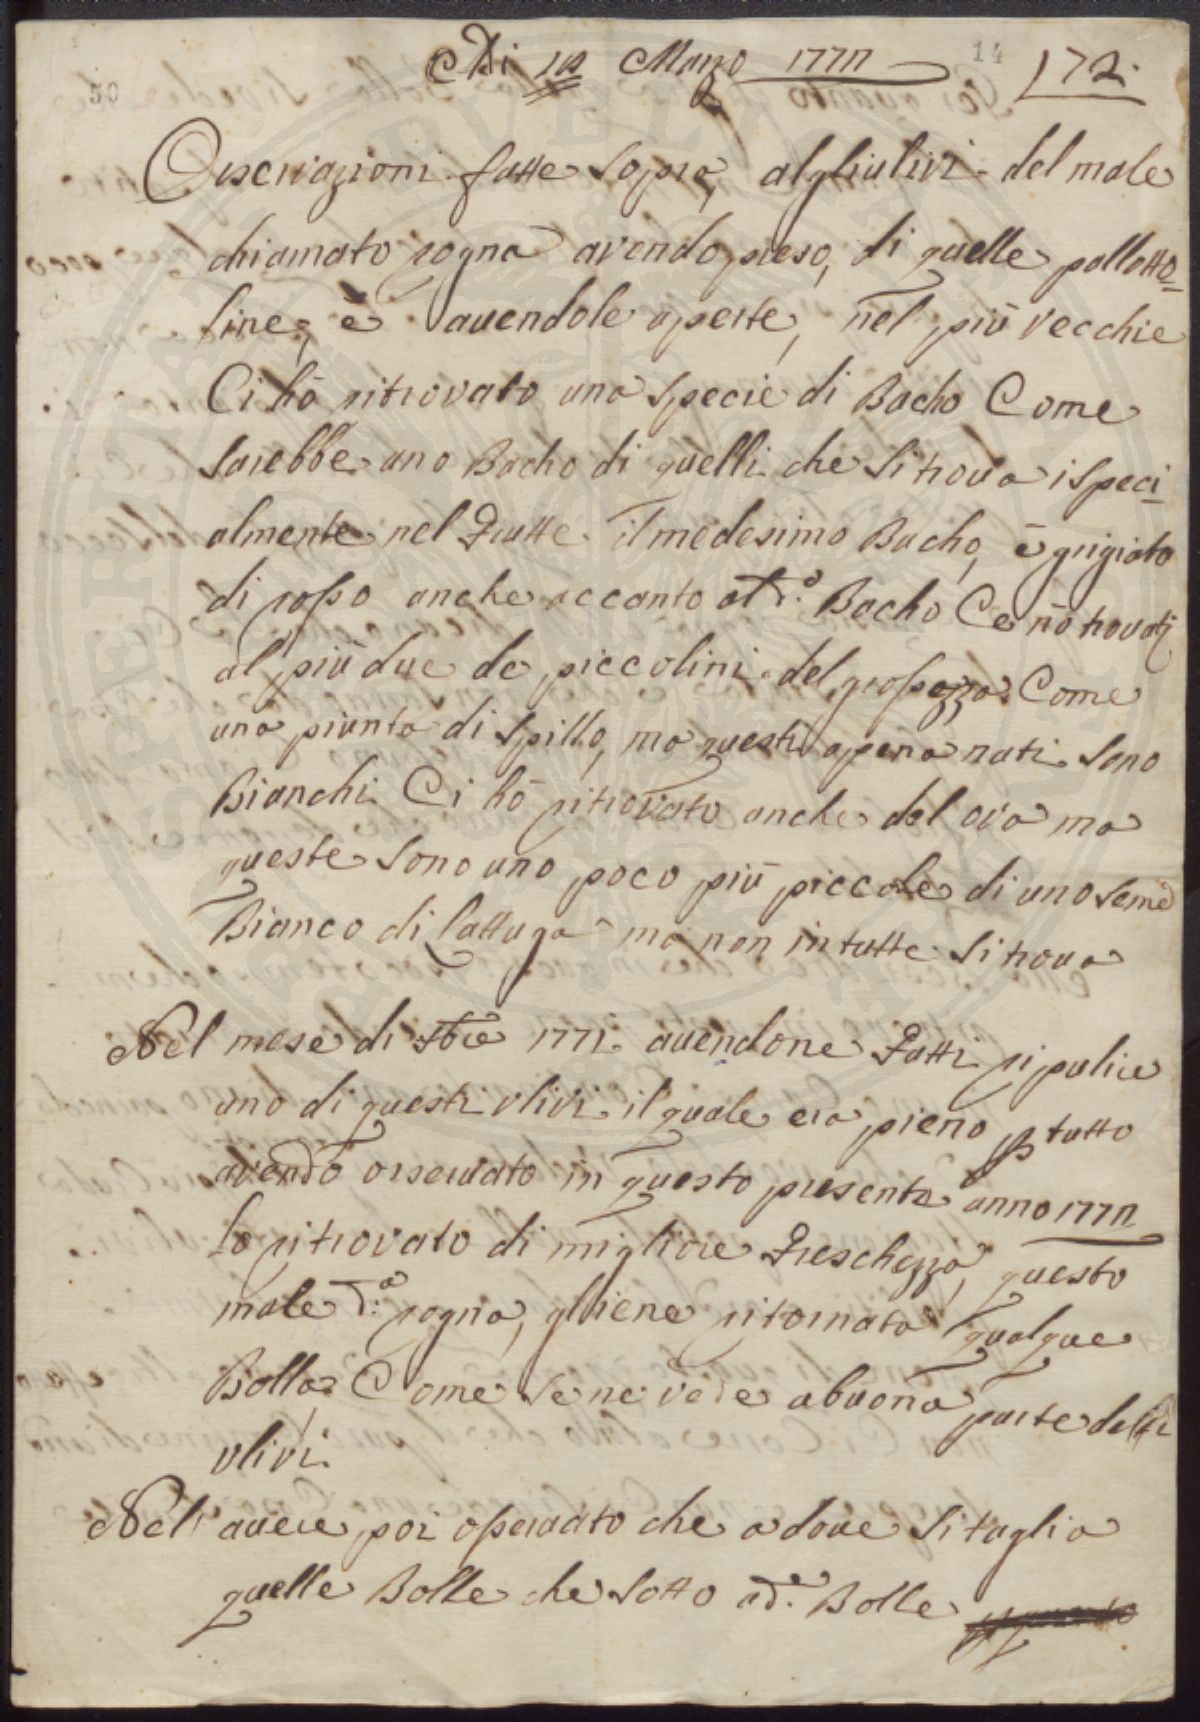 Adi 12 Marzo 1772
14
172.
50
Osservazioni fatte Sopra, algliulivi del male
chiamato rogna avendo preso, di quelle pallotto=
line, è avendole aperte, nel più vecchie
Ci hò ritrovato una Specie di Bacho Come
Sarebbe uno Bacho di quelli che Si trova ispeci
almente nel Frutte il medesimo Bacho, è grigiato
di rosso anche accanto al d.º Bacho Ce nò trovati
al più due de piccolini del grossezza Come
una piunta di Spillo, ma questi apena nati Sono
Bianchi Ci hò ritrovato anche del ova ma
queste Sono uno poco più piccole di uno Seme
Bianco di Lattuga ma non in tutte Si trova
Nel mese di 1771. avendone Fatti ripulire
uno di questi ulivi il quale era pieno p tutto
avendo osservato in questo presente anno 1772
Lo ritrovato di migliore Freschezza, questo
male d.ª rogna, gliene ritornata qualque
Bolla, Come Se ne vede abuona parte delli
ulivi.
Nell' avere poi osservato che a dove Si taglia
quelle Bolle che Sotto a d.e Bolle